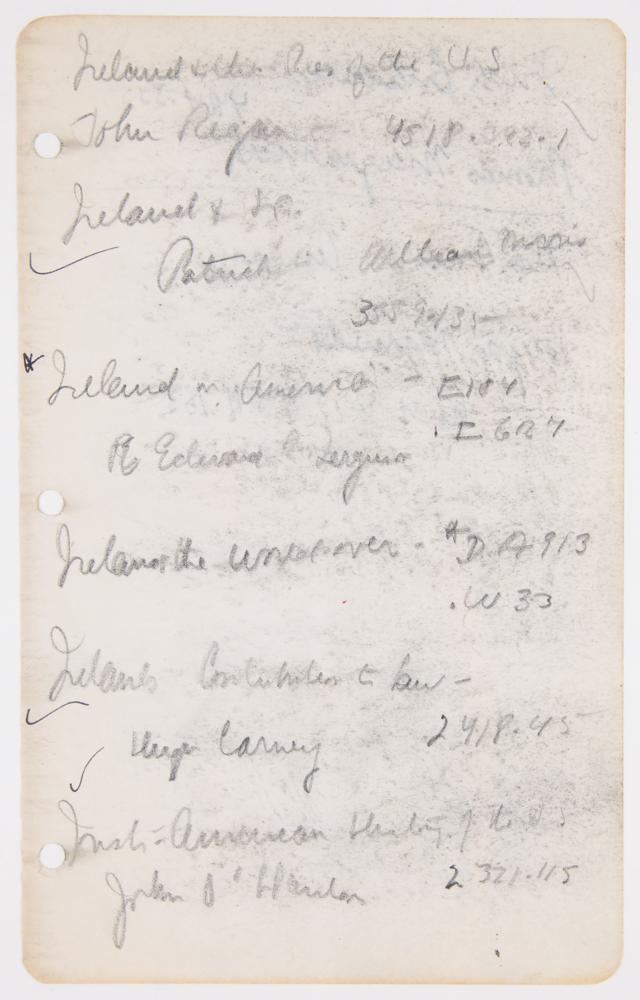 Ireland & the Pres of the U.S
John Regan 4518.392.1
Ireland &
Patrick William Morris
3559.135
* Ireland in America - E184
.E6R7
Edward
Ireland the world over - * DA913
.W33
Irelands Contribution to Law -
Hugh Carney 2418.45
Irish-American History of the U.S.
John O'Hanlon 2321.115